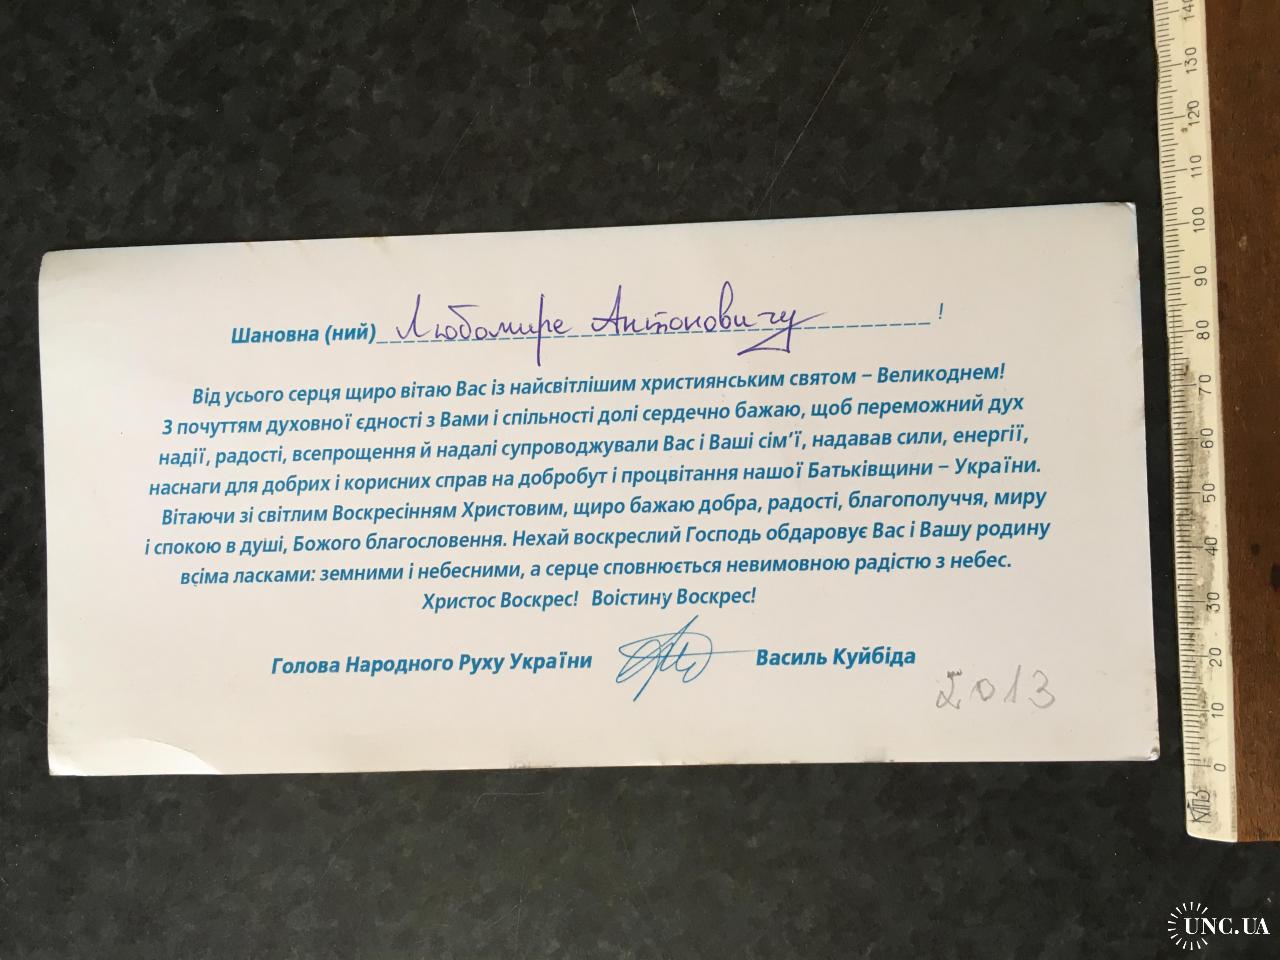 Шановна (ний) Любомире Антоновичу !
Від усього серця щиро вітаю Вас із найсвітлішим християнським святом – Великоднем!
З почуттям духовної єдності з Вами і спільності долі сердечно бажаю, щоб переможний дух
надії, радості, всепрощення й надалі супроводжували Вас і Ваші сім'ї, надавав сили, енергії,
наснаги для добрих і корисних справ на добробут і процвітання нашої Батьківщини – України.
Вітаючи зі світлим Воскресінням Христовим, щиро бажаю добра, радості, благополуччя, миру
і спокою в душі, Божого благословення. Нехай воскреслий Господь обдаровує Вас і Вашу родину
всіма ласками: земними і небесними, а серце сповнюється невимовною радістю з небес.
Христос Воскрес! Воістину Воскрес!
Голова Народного Руху України Василь Куйбіда
2013
140
130
120
110
100
90
80
70
60
50
40
30
20
10
0
UNC.UA